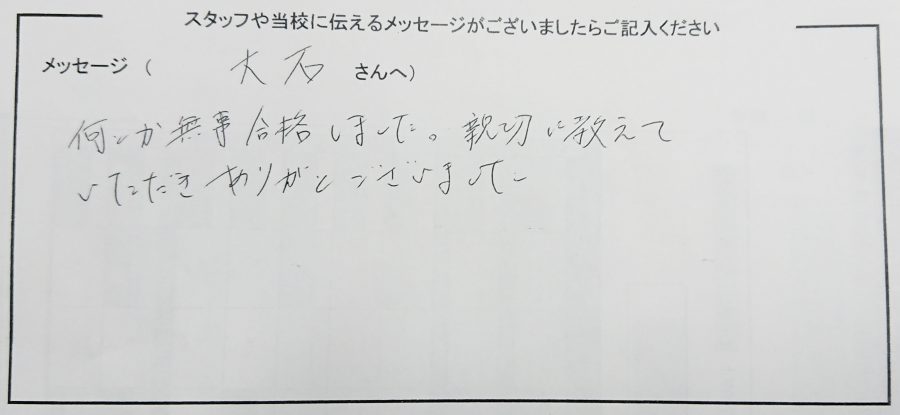 スタッフや当校に伝えるメッセージがございましたらご記入ください
メッセージ ( 大石 さんへ)
何とか無事合格しました。親切に教えて
いただきありがとうございました